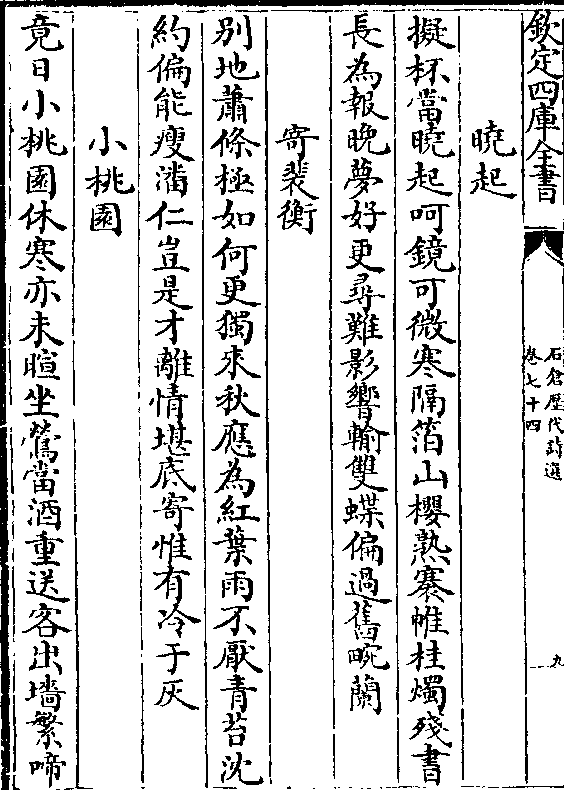 欽定四庫全書
石倉歷代詩選
卷七十四
九
曉起
擬杯當曉起呵鏡可微寒隔箔山櫻熟褰帷桂燭殘書
長為報晚夢好更尋難影響輸雙蝶偏過舊畹蘭
寄裴衡
别地蕭條極如何更獨來秋應為紅葉雨不厭青苔沈
約偏能瘦潘仁豈是才離情堪底寄惟有冷于灰
小桃園
竟日小桃園休寒亦未暄坐鶯當酒重送客出墻繁啼